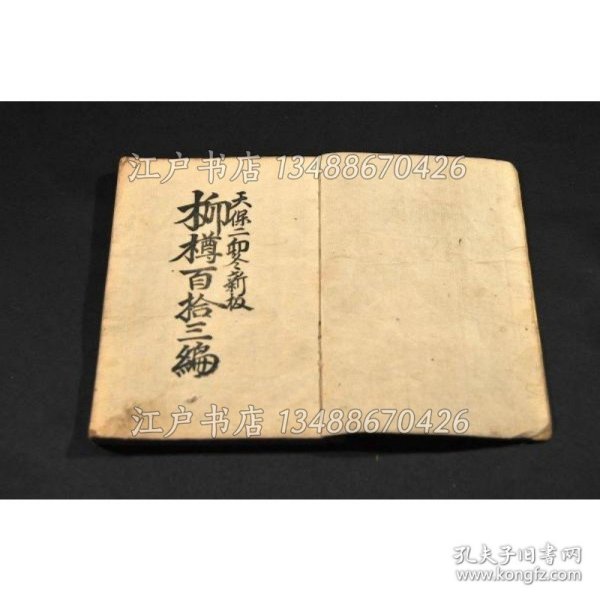 江户书店 13488670426
天保二卯冬新板
柳樽百拾三編
江户书店 13488670426
孔夫子旧书网
www.kongfz.com